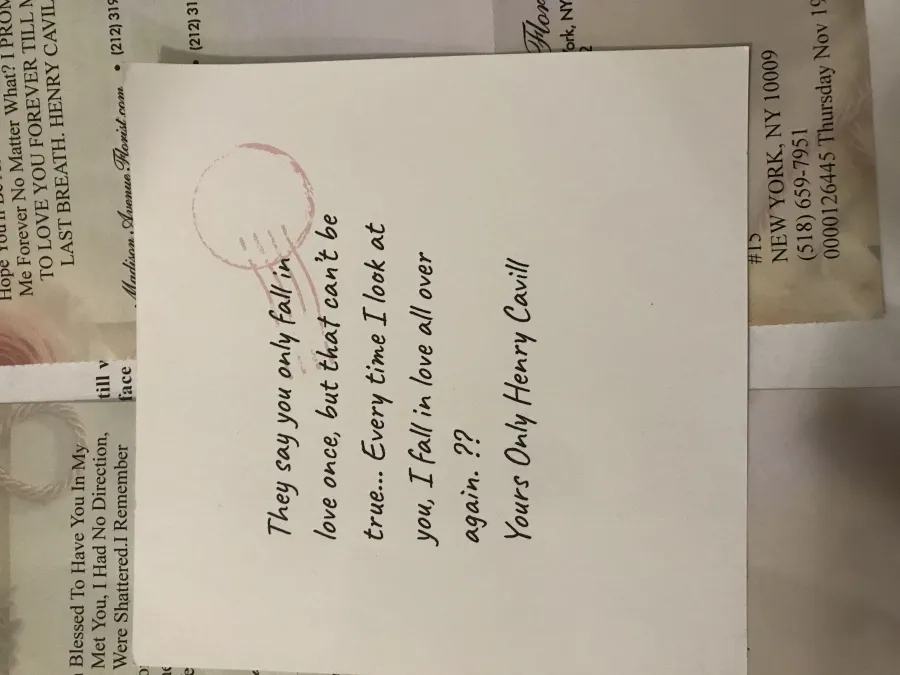 Hope You'll
Me Forever No Matter What? I
TO LOVE YOU FOREVER TILL
LAST BREATH. HENRY CAVIL
Madison Avenue Florist.com
• (212) 319
• (212) 31
Flor
ork, NY
2
#15
NEW YORK, NY 10009
(518) 659-7951
0000126445 Thursday Nov 19
They say you only fall in
love once, but that can't be
true... Every time I look at
you, I fall in love all over
again. ??
Yours Only Henry Cavill
till
face
Blessed To Have You In My
Met You, I Had No Direction,
Were Shattered.I Remember